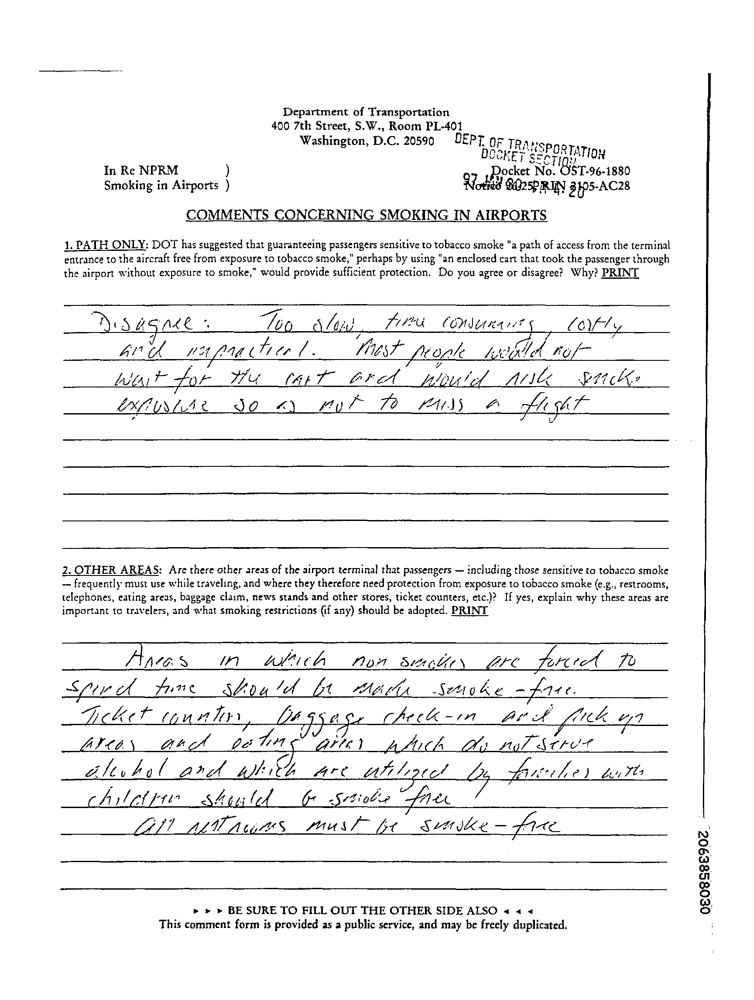 Department of Transportation
400 7th Street, S.W., Room PL-401
Washington, D.C. 20590
DEPT. OF TRANSPORTATION
DOCKET SECTION
In Re NPRM )
Docket No. OST-96-1880
Smoking in Airports )
2105-AC28
COMMENTS CONCERNING SMOKING IN AIRPORTS
1. PATH ONLY: DOT has suggested that guaranteeing passengers sensitive to tobacco smoke "a path of access from the terminal
entrance to the aircraft free from exposure to tobacco smoke," perhaps by using "an enclosed cart that took the passenger through
the airport without exposure to smoke," would provide sufficient protection. Do you agree or disagree? Why? PRINT
Disagree: Too slow, time consuming, costly
and impractical. Most people would not
wait for the cart and would risk smoke
exposure so as not to miss a flight
2. OTHER AREAS: Are there other areas of the airport terminal that passengers — including those sensitive to tobacco smoke
— frequently must use while traveling, and where they therefore need protection from exposure to tobacco smoke (e.g., restrooms,
telephones, eating areas, baggage claim, news stands and other stores, ticket counters, etc.)? If yes, explain why these areas are
important to travelers, and what smoking restrictions (if any) should be adopted. PRINT
Areas in which non smokers are forced to
spend time should be made smoke-free.
Ticket counters, baggage check-in and pick up
areas and eating areas which do not serve
alcohol and which are utilized by families with
children should be smoke free
All restrooms must be smoke-free
► ► ► BE SURE TO FILL OUT THE OTHER SIDE ALSO ◄ ◄ ◄
This comment form is provided as a public service, and may be freely duplicated.
2063858030